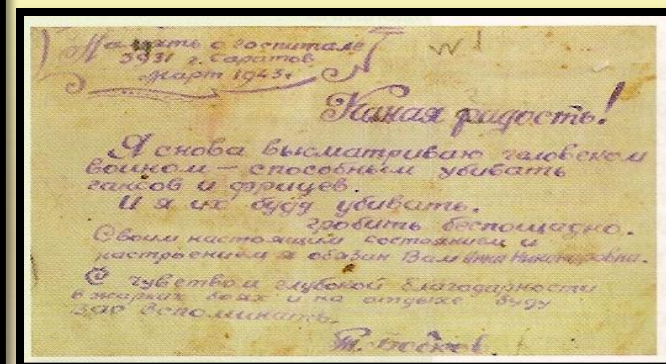 Память о госпитале
3931 г. Саратов
март 1943 г
№1
Какая радость!
Я снова высматриваю человеком
воином — способным убивать
гансов и фрицев.
И я их буду убивать.
гробить беспощадно.
Своим настоящим состоянием и
настроением я обязан Вам Анна Никаноровна.
С чувством глубокой благодарности
в жарких боях и на отдыхе буду
вспоминать.